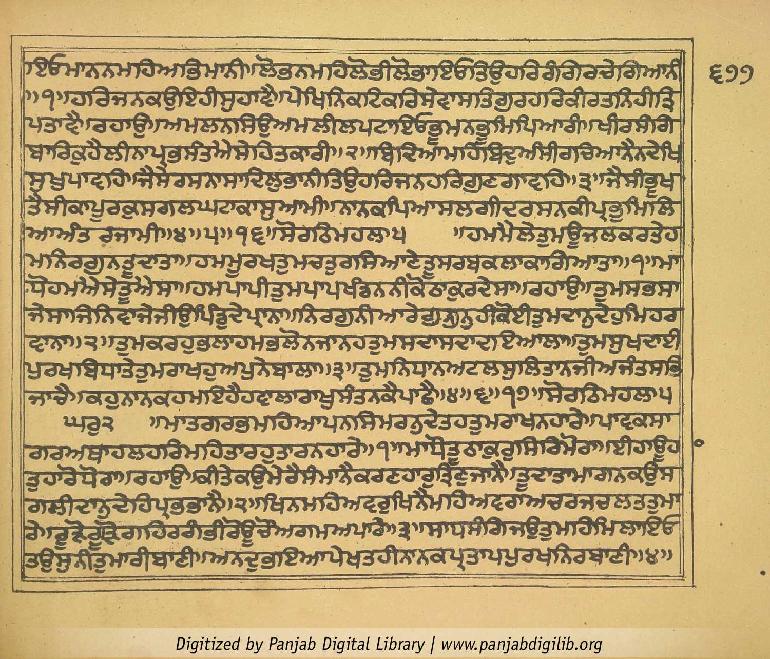 ਇਓਮਾਨਨਮਹਿਅਭਿਮਾਨੀ॥ਲੋਭਨਮਹਿਲੋਭੀਲੋਭਾਇਓਤਿਉਹਰਿਰੰਗਿਰਚੇਗਿਆਨੀ
॥੧॥ਹਰਿਜਨਕਉਇਹੀਸੁਹਾਵੈ॥ਪੇਖਿਨਿਕਟਿਕਰਿਸੇਵਾਸਤਿਗੁਰਹਰਿਕੀਰਤਨਿਹੀਤ੍ਰਿ
ਪਤਾਵੈ॥ਰਹਾਉ॥ਅਮਲਨਸਿਉਅਮਲੀਲਪਟਾਇਓਭੂਮਨਭੂਮਿਪਿਆਰੀ॥ਖੀਰਸੰਗਿ
ਬਾਰਿਕੁਹੈਲੀਨਾਪ੍ਰਭਸੰਤਐਸੇਹਿਤਕਾਰੀ॥੨॥ਬਿਦਿਆਮਹਿਬਿਦੁਅੰਸੀਰਚਿਆਨੈਨਦੇਖਿ
ਸੁਖੁਪਾਵਹਿ॥ਜੈਸੇਰਸਨਾਸਾਦਿਲੁਭਾਨੀਤਿਉਹਰਿਜਨਹਰਿਗੁਣਗਾਵਹਿ॥੩॥ਜੈਸੀਭੂਖ
ਤੈਸੀਕਾਪੂਰਕੁਸਗਲਘਟਾਕਾਸੁਆਮੀ॥ਨਾਨਕਪਿਆਸਲਗੀਦਰਸਨਕੀਪ੍ਰਭੁਮਿਲਿ
ਆਅੰਤਰਜਾਮੀ॥੪॥੫॥੧੬॥ਸੋਰਠਿਮਹਲਾ੫ ॥ਹਮਮੈਲੇਤੁਮਊਜਲਕਰਤੇਹ
ਮਨਿਰਗੁਨਤੂਦਾਤਾ॥ਹਮਮੂਰਖਤੁਮਚਤੁਰਸਿਆਣੇਤੂਸਰਬਕਲਾਕਾਗਿਆਤਾ॥੧॥ਮਾ
ਧੋਹਮਐਸੇਤੂਐਸਾ॥ਹਮਪਾਪੀਤੁਮਪਾਪਖੰਡਨਨੀਕੋਠਾਕੁਰਦੇਸਾ॥ਰਹਾਉ॥ਤੁਮਸਭਸਾ
ਜੇਸਾਜਿਨਿਵਾਜੇਜੀਉਪਿੰਡੁਦੇਪ੍ਰਾਨਾ॥ਨਿਰਗੁਨੀਆਰੇਗੁਨੁਨਹੀਕੋਈਤੁਮਦਾਨੁਦੇਹੁਮਿਹਰ
ਵਾਨਾ॥੨॥ਤੁਮਕਰਹੁਭਲਾਹਮਭਲੋਨਜਾਨਹਤੁਮਸਦਾਸਦਾਦਇਆਲਾ॥ਤੁਮਸੁਖਦਾਈ
ਪੁਰਖਬਿਧਾਤੇਤੁਮਰਾਖਹੁਅਪੁਨੇਬਾਲਾ॥੩॥ਤੁਮਨਿਧਾਨਅਟਲਸੁਲਿਤਾਨਜੀਅਜੰਤਸਭਿ
ਜਾਚੈ॥ਕਹੁਨਾਨਕਹਮਇਹੈਹਵਾਲਾਰਾਖੁਸੰਤਨਕੈਪਾਛੈ॥੪॥੬॥੧੭॥ਸੋਰਠਿਮਹਲਾ੫
ਘਰੁ੨ ॥ਮਾਤਗਰਭਮਹਿਆਪਨਸਿਮਰਨੁਦੇਤਹਤੁਮਰਾਖਨਹਾਰੇ॥ਪਾਵਕਸਾ
ਗਰਅਥਾਹਲਹਰਿਮਹਿਤਾਰਹੁਤਾਰਨਹਾਰੇ॥੧॥ਮਾਧੌਤੂਠਾਕੁਰੁਸਿਰਿਮੋਰਾ॥ਈਹਾਊਹ
ਤੁਹਾਰੋਧੋਰਾ॥ਰਹਾਉ॥ਕੀਤੇਕਉਮੇਰੈਸੰਮਾਨੈਕਰਣਹਾਰੁਤ੍ਰਿਣੁਜਾਨੈ॥ਤੂਦਾਤਾਮਾਗਨਕਉਸ
ਗਲੀਦਾਨੁਦੇਹਿਪ੍ਰਭਭਾਨੈ॥੨॥ਖਿਨਮਹਿਅਵਰੁਖਿਨੈਮਹਿਅਵਰਾਅਚਰਜਚਲਤਤੁਮਾ
ਰੇ॥ਰੂੜੋਗੂੜੋਗਹਿਰਗੰਭੀਰੋਊਚੌਅਗਮਅਪਾਰੇ॥੩॥ਸਾਧਸੰਗਿਜਉਤੁਮਹਿਮਿਲਾਇਓ
ਤਉਸੁਨੀਤੁਮਾਰੀਬਾਣੀ॥ਅਨਦੁਭਇਆਪੇਖਤਹੀਨਾਨਕਪ੍ਰਤਾਪਪੁਰਖਨਿਰਬਾਣੀ॥੪॥
੬੧੧
Digitized by Panjab Digital Library | www.panjabdigilib.org